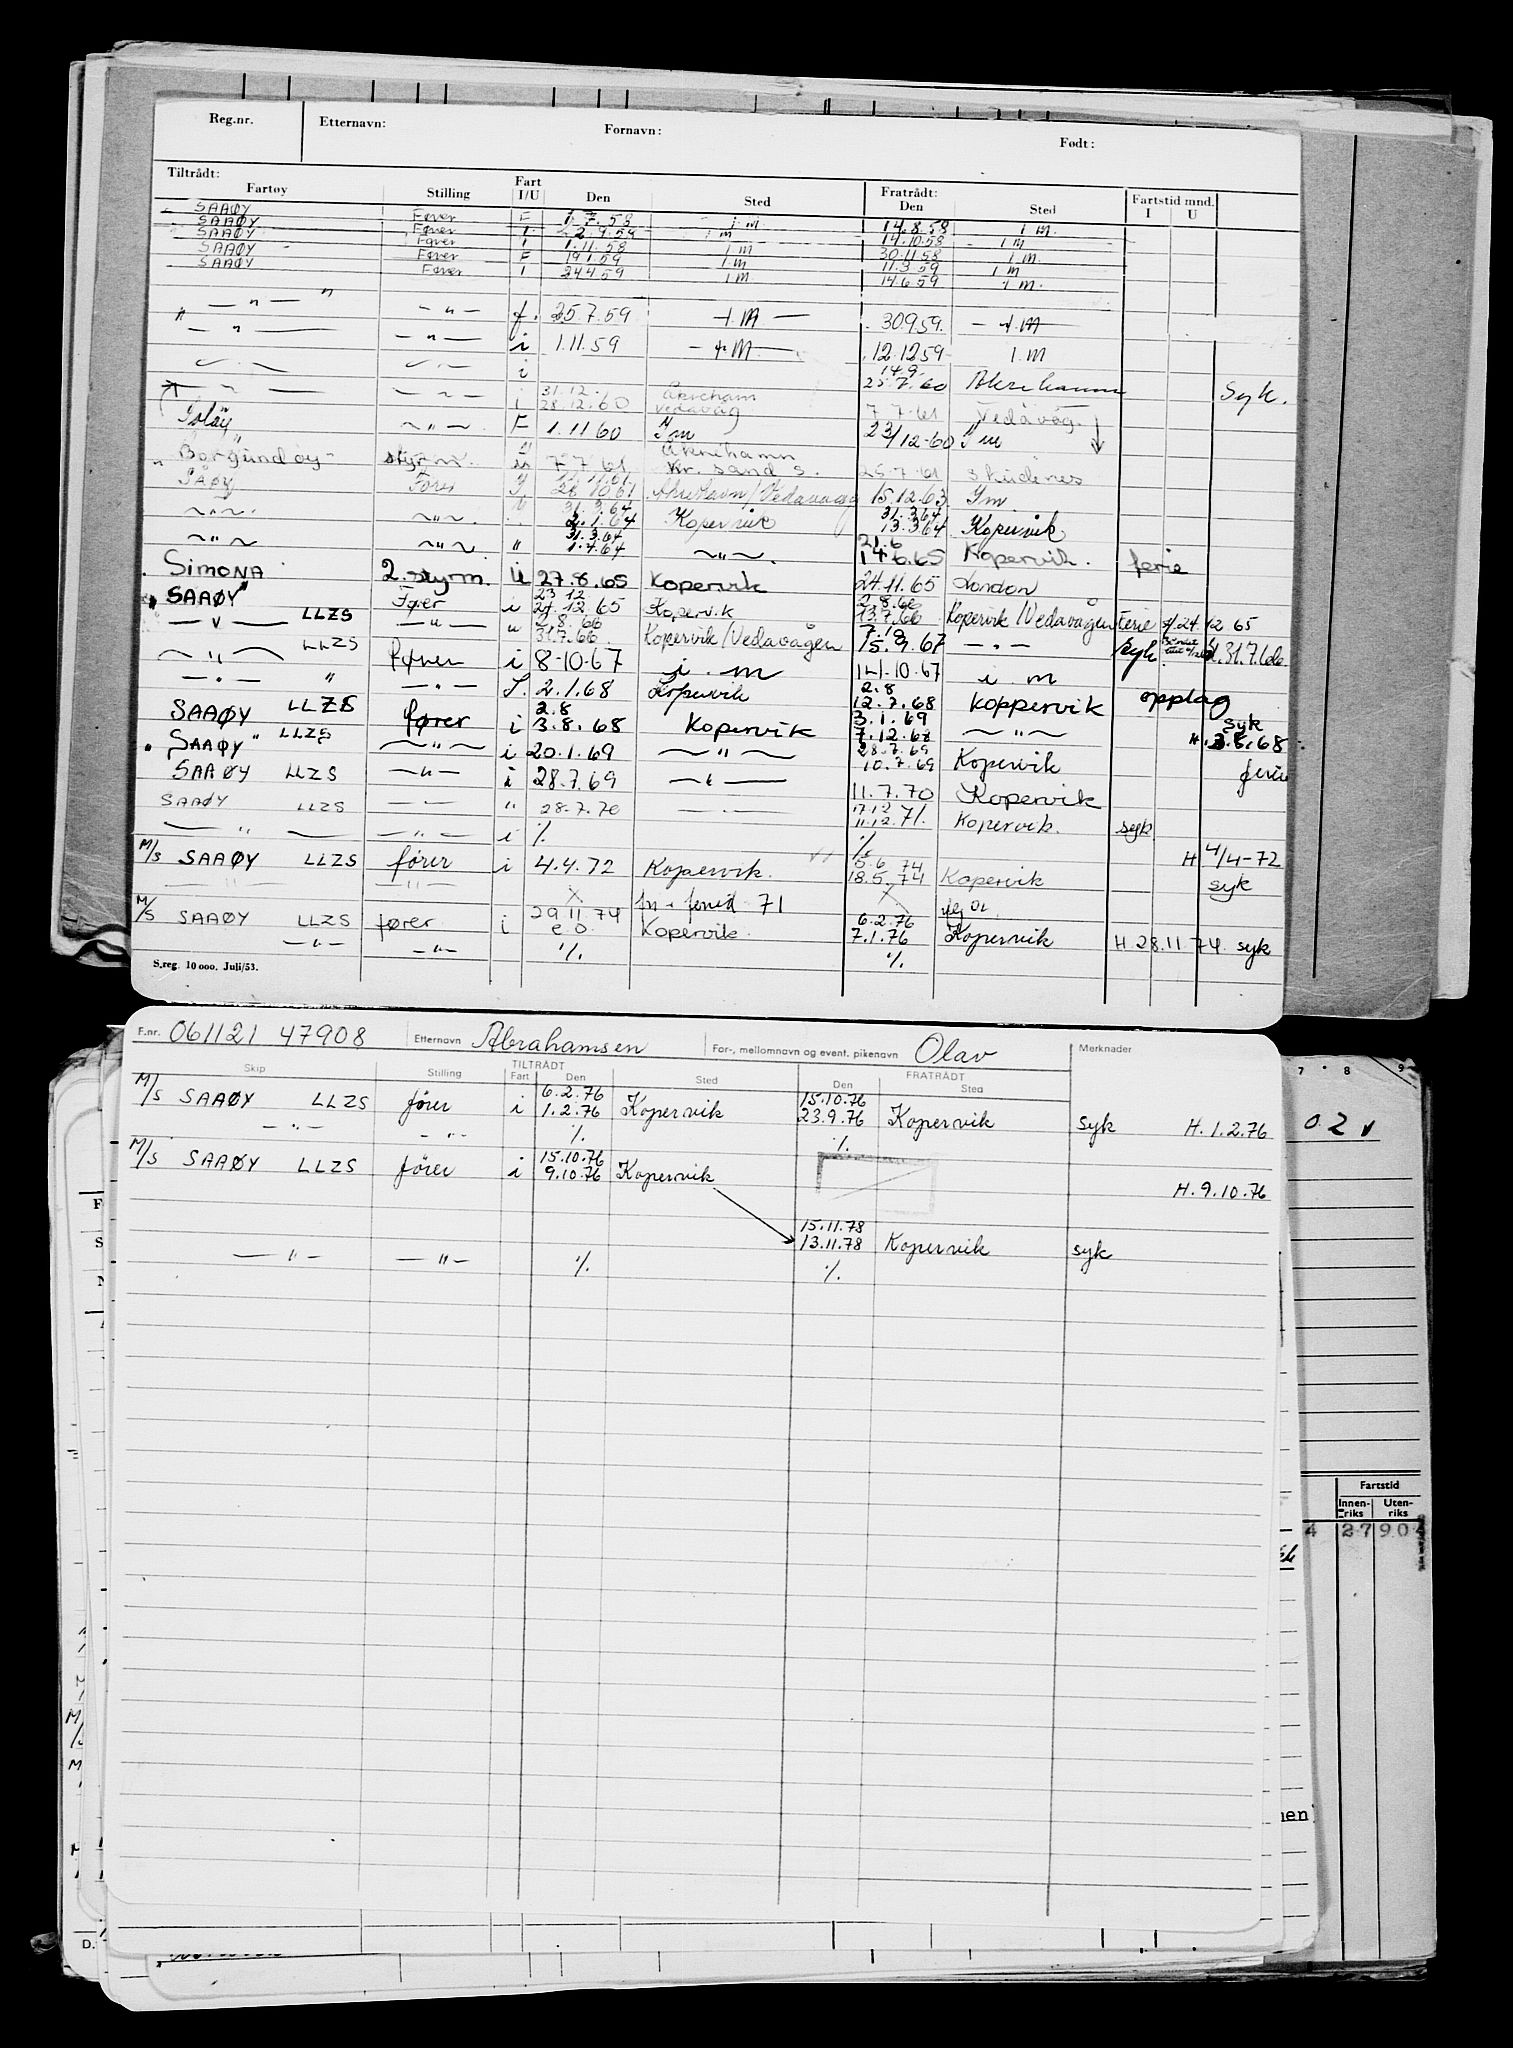 Reg.nr. Etternavn: Fornavn: Født:
Tiltrådt: Fratrådt:
Fartøy Stilling Fart I/U Den Sted Den Sted Fartstid mnd. I U
SAAØY Fører F 1.7.58 i m 14.8.58 i m.
SAAØY Fører 2.9.58 i m 14.10.58 i m
SAAØY Fører 1 1.11.58 i m 30.11.58 i m.
SAAØY Fører F 19 1.59 i m 11.3.59 i m
SAAØY Fører 1 24 4 59 i m 14.6.59 i m.
— " — " — " — f. 25.7.59 — i. M — 30 9 59. — i. M
" — " — — " — i 1.11.59 — i. M — 12.12 59 i. M
i 14.9.
— " — i 31.12. Åkreham 25.7.60 Åkrehamn Syk.
28.12.60 Vedavåg 7.7.61 Vedavåg.
F 1.11 60 I m 23/12-60 I m
Borgundøy styrm. 7.7.61 Åkrehamn Kr. sand s. 25.7.61 Skudenes
SÅØY Fører 28 10 61 Åkrehavn/Vedavågg 15.12.63 I m.
~ " ~ ~ " ~ 31.3.64 2.1.64 Kopervik 31.3.64 13.3.64 Kopervik
~ " ~ ~ " ~ " 31.3.64 1.4.64 ~ " ~ 21.6 14.6.65 Kopervik. ferie
SIMONA 2. styrm. U 27.8.65 Kopervik 24.11.65 London
SAAØY Fører i 23 12 24.12.65 Kopervik 2.8.66 13.7.66 Kopervik/Vedavågen ferie H. 24.12 65
— " — LLZS — " — " 2.8.66 31.7.66 Kopervik/Vedavågen 15.9.67 — " — syk H. 31.7.66
— " — LLZS fører i 8-10-67 i. m 141.10.67 i. m
— " — " — " — I. 2.1.68 Kopervik 2.8 12.7.68 Koppervik opplag
SAAØY LLZS fører i 2.8 3.8.68 Kopervik 3.1.69 7.12.68 ~ " ~ syk H. 3.8.68
" SAAØY " LLZS ~ " ~ i 20.1.69 ~ " ~ 28.7.69 10.7.69 Kopervik ferie
SAAØY LLZS — " — i 28.7.69 — " — 11.7.70 Kopervik
SAAØY LLZS — " — " 28.7.70 — " — 17.12 11.12.71. Kopervik. syk
— " — — " — i %. %.
M/S SAAØY LLZS fører i 4.4.72 Kopervik. 5.6 74 18.5.74 Kopervik H 4/4-72
— " — — " — X 71 X syk
M/S SAAØY LLZS fører i 29 11 74 e.o. Kopervik. 6.2.76 7.1.76 Kopervik H. 28.11.74. syk
— " — — " — %. %.
S.reg. 10 000. Juli/53.
F.nr. 061121 47908 Etternavn Abrahamsen For-, mellomnavn og event. pikenavn Olav Merknader
TILTRÅDT FRATRÅDT
Skip Stilling Fart Den Sted Den Sted
M/S SAAØY LLZS fører i 6.2.76 1.2.76 Kopervik 15.10.76 23.9.76 Kopervik syk H. 1.2.76
— " — — " — %. %.
M/S SAAØY LLZS fører i 15.10.76 9.10.76 Kopervik H. 9.10.76
15.11.78
13.11.78 Kopervik syk
— " — — " — %. %.
7 8 9
0 2 v
Fartstid
Innen-riks Uten-riks
4 27 904
nen
D.